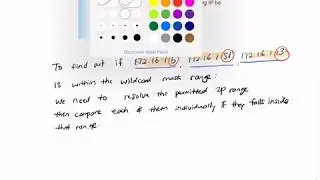 ing IP be
To find out if 172.16.1.15, 172.16.1.51, 172.16.1.13
is within the wildcard mask range:
We need to resolve the permitted IP range
then compare each of them individually if they falls inside
that range.